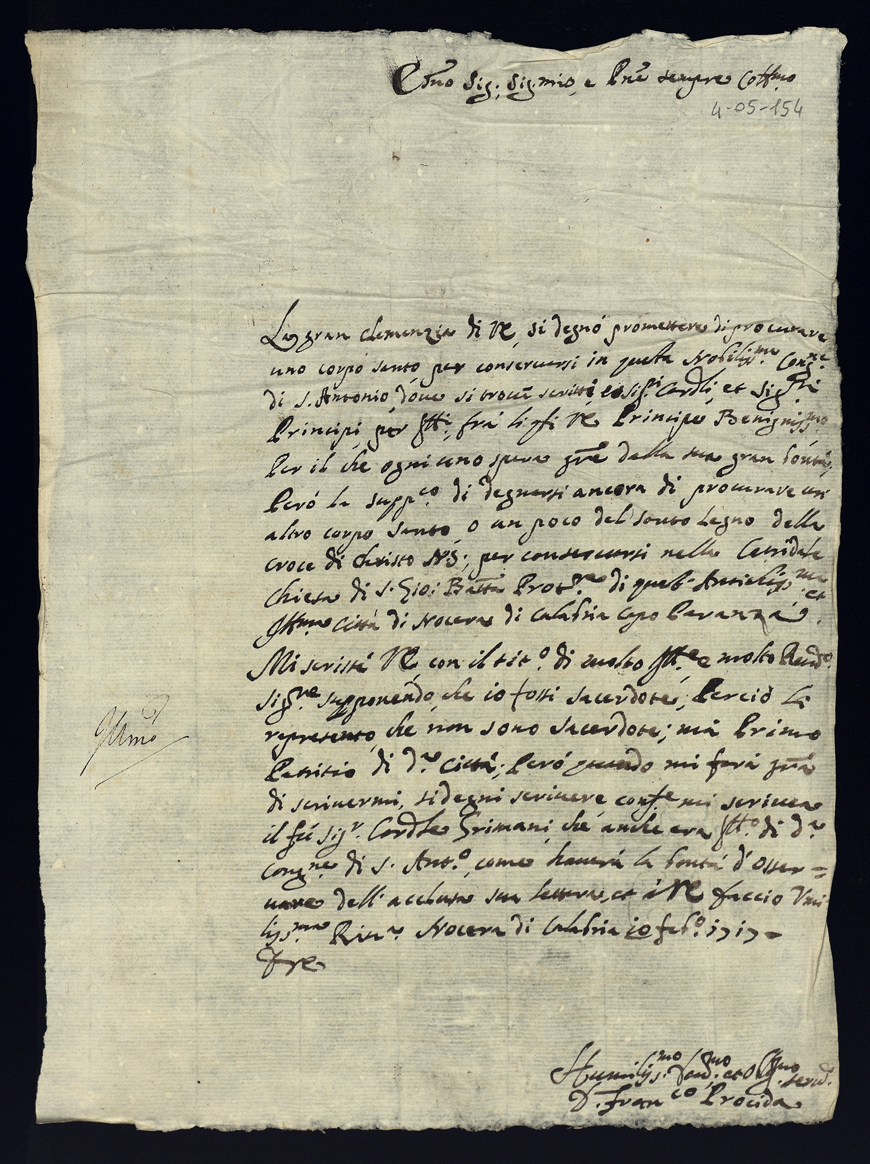 Em̃o Sig.r Sig.mio, e Pñe sempre Coll.mo
4-05-154
La gran clemenzia di VE, si degnò promettere di procurare
uno corpo santo per conservarsi in questa Nobiliss.ma Cong.ne
di S. Antonio, dove si trovañ scritti e sig.ri Cardli, et Sig.ri
Principi per frĩi, frà li VE Principe Benigniss.mo
Per il che ogniuno spera grã dalla sua gran bontà,
Però la supp.co di degnarsi ancora di procurare un
altro corpo santo, o un poco del santo legno della
croce di Christo N.S.; per conservarsi nella Catedrale
Chiesa di S. Gio: Batt̃a Prot.re di questa Antichiss.ma et
Ill.ma Città di Nocera di Calabria Capo
Mi scrisse VE con il tit.o di molto Ill.re e molto Rev.do
Sig.re supponendo, che io fossi sacerdote; Perciò li
represento, che non sono sacerdote; mà Primo
Patritio di d.a Città; Però quando mi farà grã
di scrivermi, si degni scrivere conf.e mi scrivea
il fù Sig.r Cardle Grimani, che anche era di d.a
Cong.ne di S. Ant.o, come haverà la bontà d'osser=
vare dell'acclusa sua lettera, et à VE faccio Umi
liss.ma Riv.a Nocera di Calabria 10 feb.o 1717
D VE
Ill.mo
Humiliss.mo Dev.mo et Obblig.mo serv.
D. Fran.co Procida